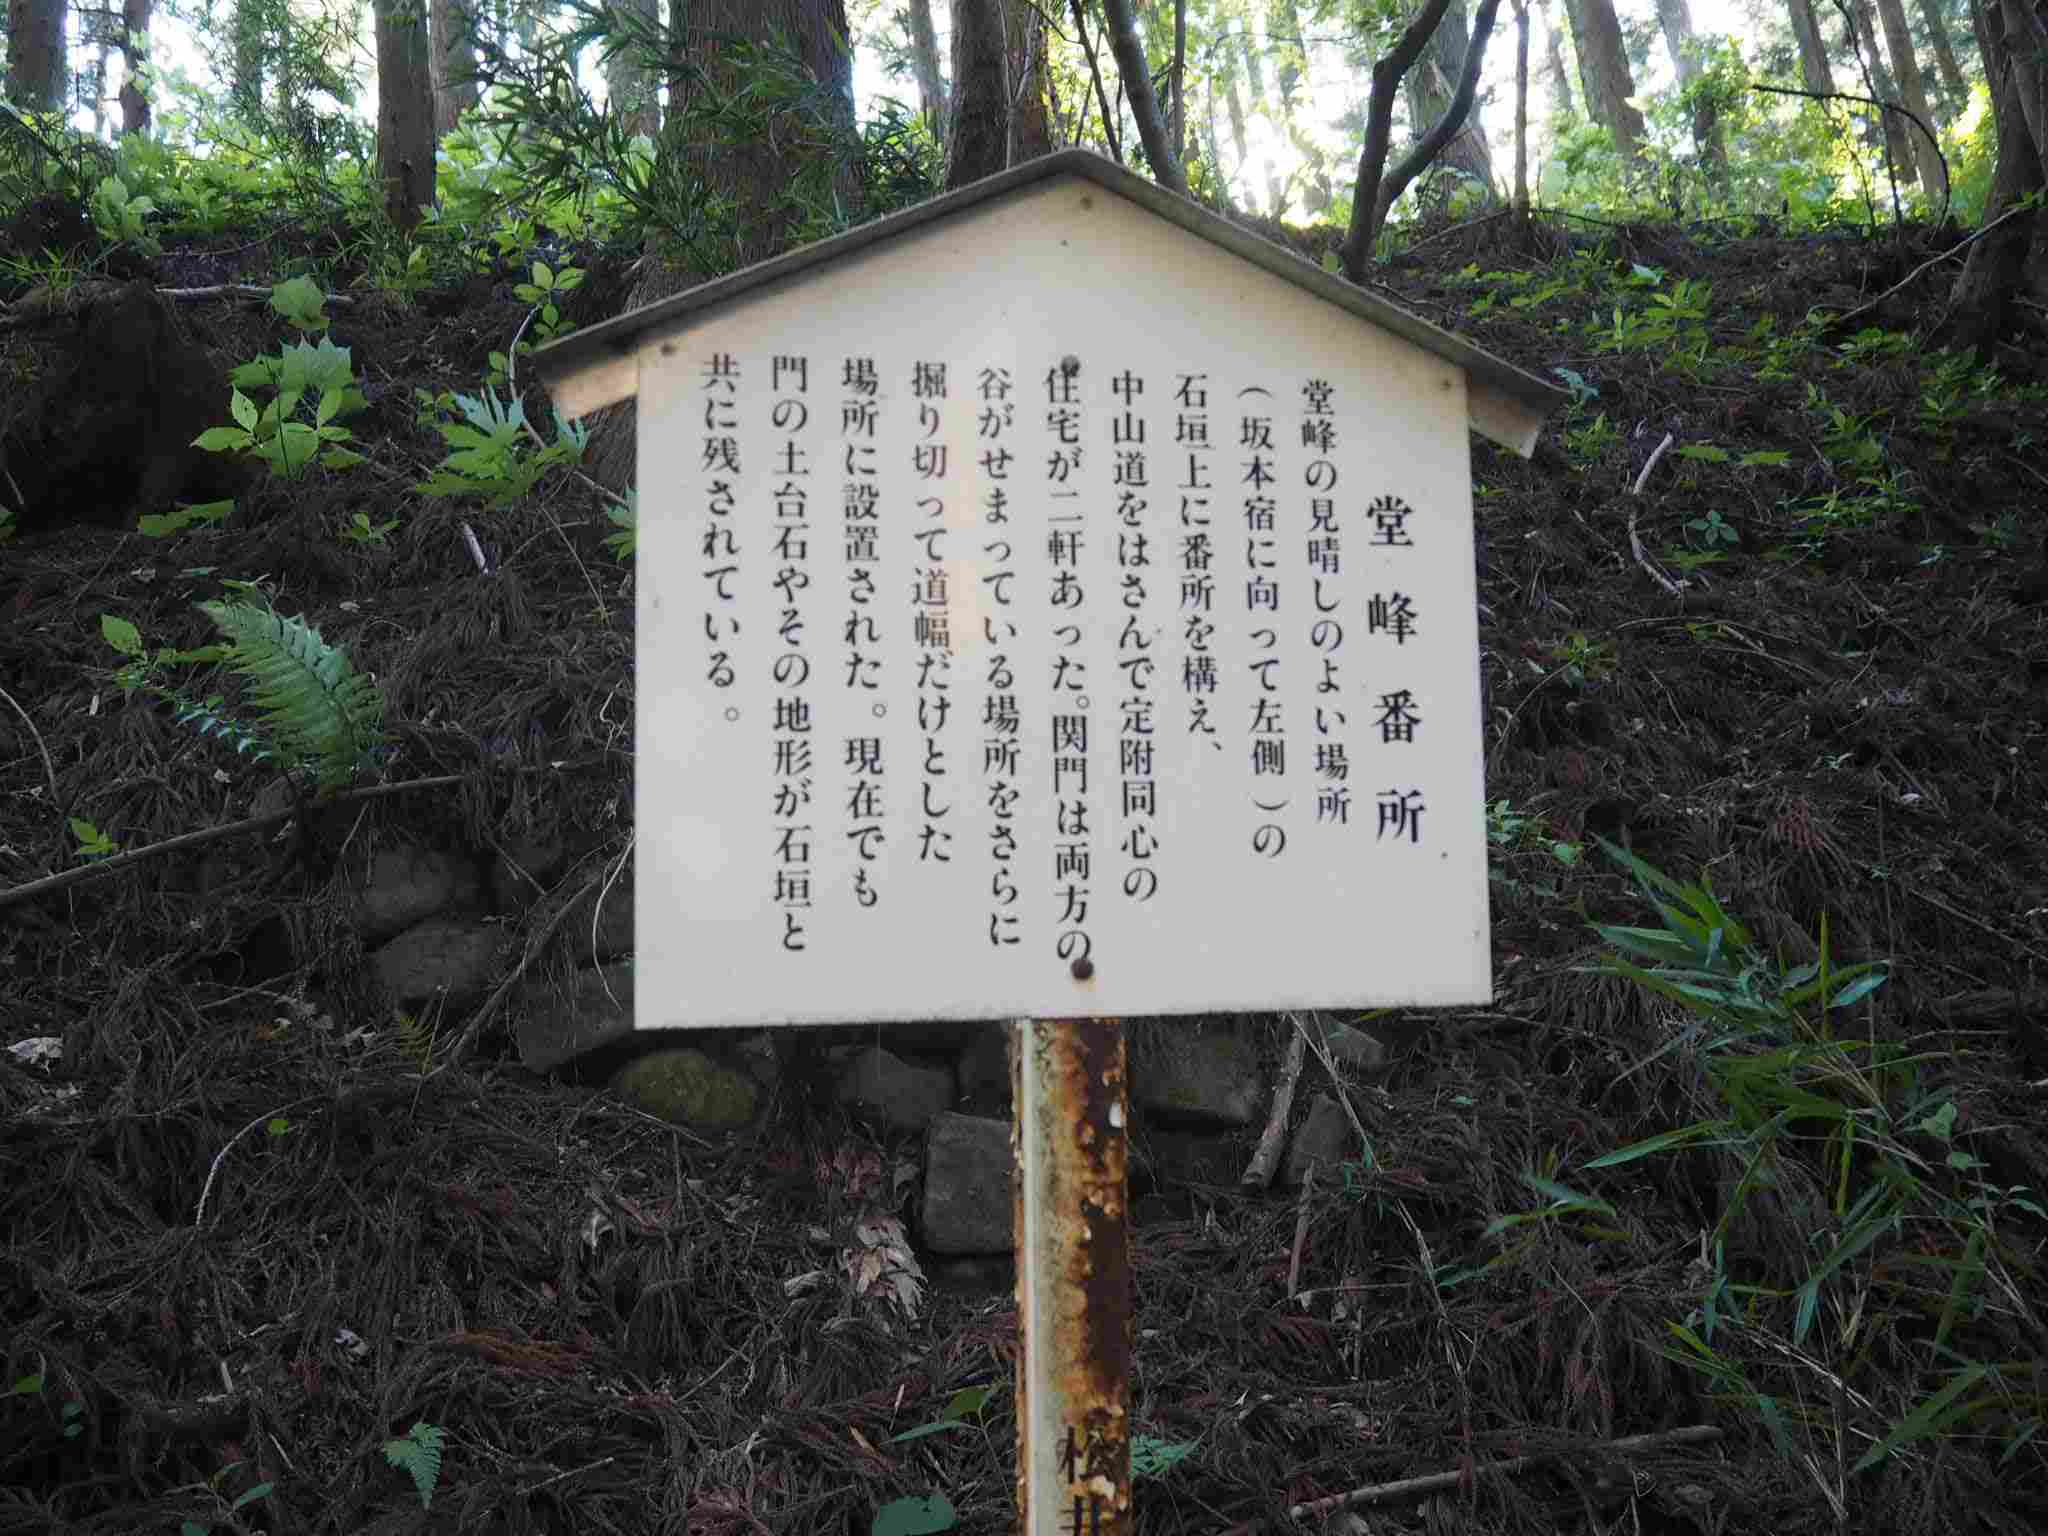 堂峰番所
堂峰の見晴しのよい場所
（坂本宿に向って左側）の
石垣上に番所を構え、
中山道をはさんで定附同心の
住宅が二軒あった。関門は両方の
谷がせまっている場所をさらに
掘り切って道幅だけとした
場所に設置された。現在でも
門の土台石やその地形が石垣と
共に残されている。
松井